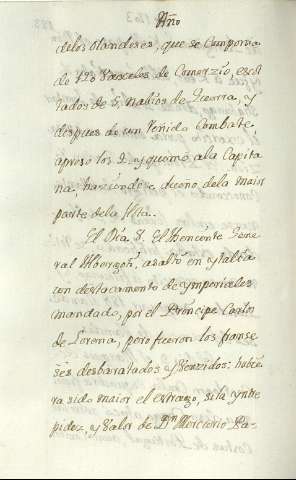 Año
delos Olandeses, que se Componia
de 120 Vaxeles de Comerzio, escol
tados de 5. nabios de Guerra, y
despues de un Reñido Combate,
apresó los 2. y quemó ala Capita
na, haziendose dueno, dela maior
parte dela
El Dia 8. El theniente Gene
ral Albergoti, asaltó en ytalia
un destacamento de ymperiales
mandado, por el Principe Carlos
de Lorena, pero fueron los franse
ses desbaratados y Venzidos: hubie
ra sido maior el extrago, sila yntre
pidez, y Valor de Dn Mercurio Pa-